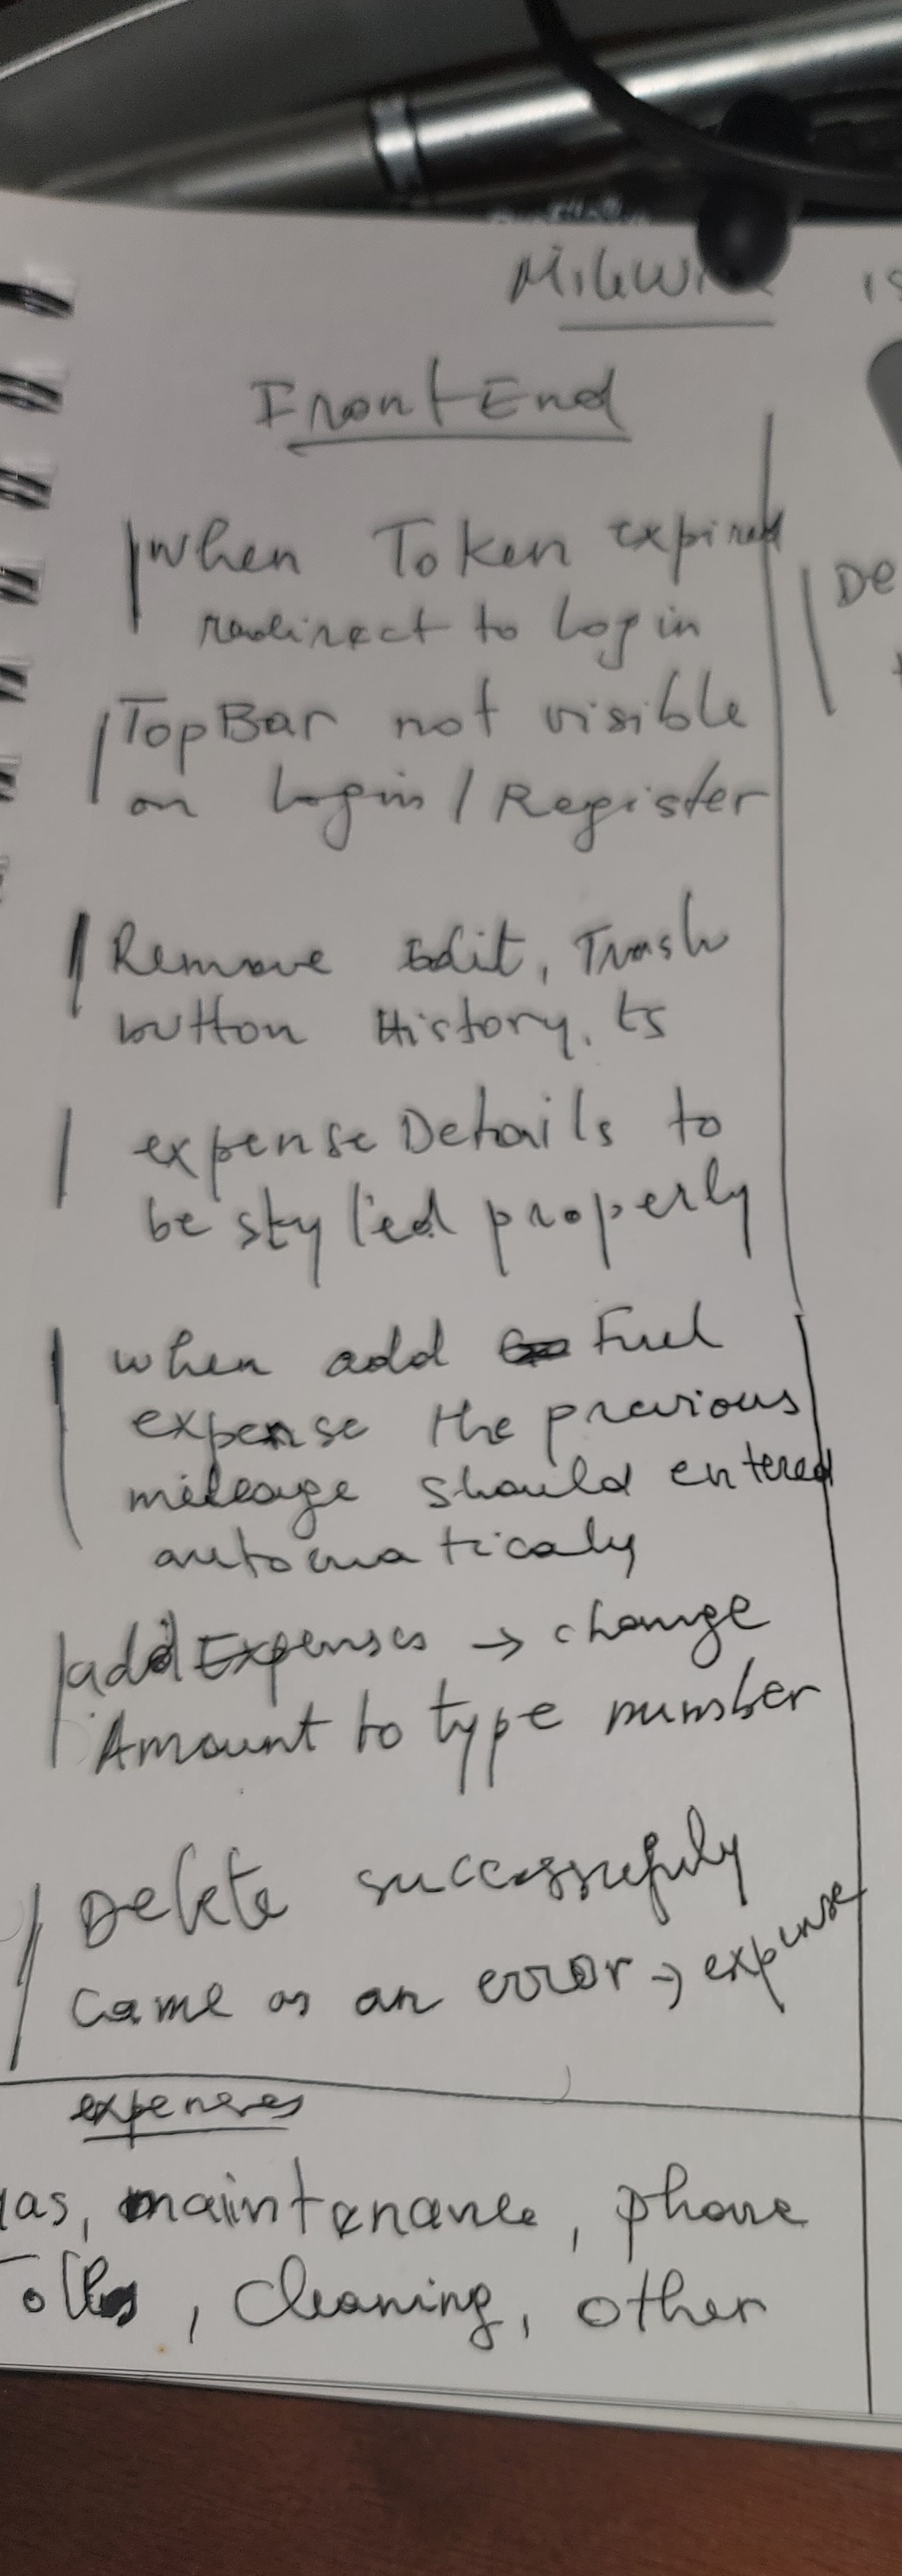 FrontEnd
when Token expired
redirect to login
TopBar not visible
on login / Register
Remove Edit, Trash
button History.ts
expenseDetails to
be stylied properly
when add Fuel
expense the previous
mileage should entered
automaticaly
add Expenses → change
Amount to type number
Delete successfuly
came as an error → expense
expenses
maintenance, phone
Tolls, cleaning, other